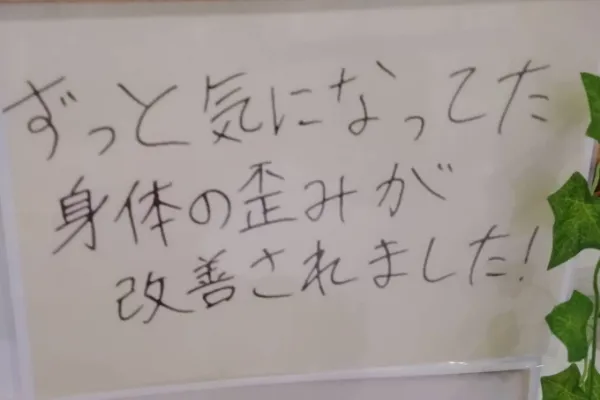 ずっと気になってた
身体の歪みが
改善されました!